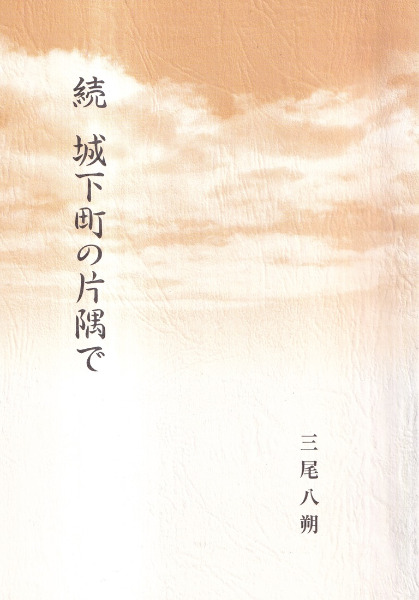 続 城下町の片隅で
三尾八朔